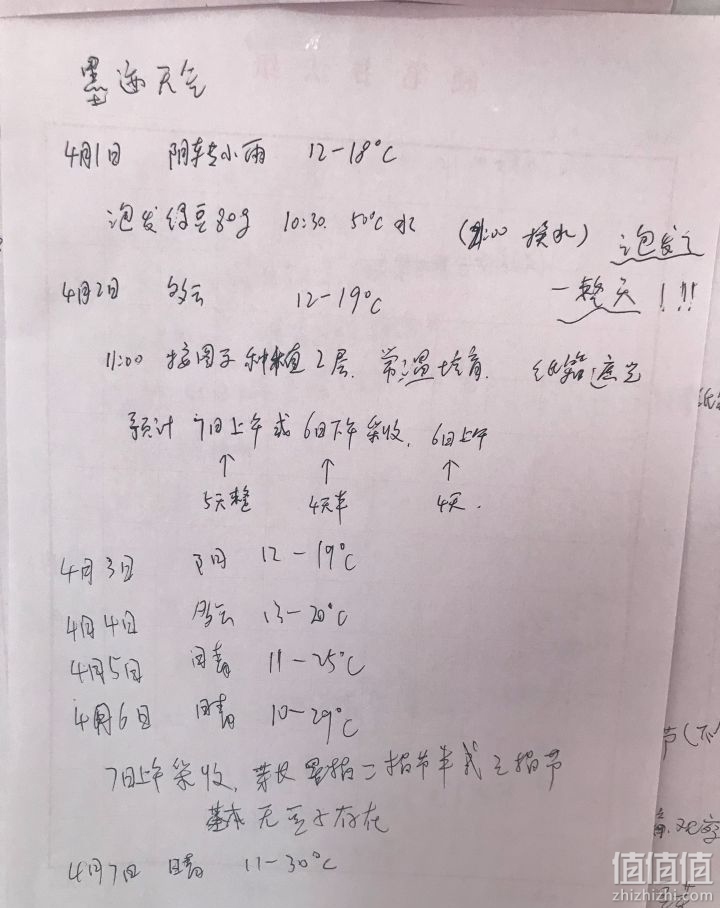 墨迹天气
4月1日 阴转小雨 12-18°C
泡发绿豆80g 10:30. 50°C水 (21:00 换水) 泡发了
一整天!!!
4月2日 多云 12-19°C
11:00 按图子种植2层. 常温培育. 纸箱遮光
预计 7日上午或6日下午采收, 6日上午
↑ ↑ ↑
5天整 4天半 4天.
4月3日 阴 12-19°C
4月4日 多云 13-20°C
4月5日 晴 11-25°C
4月6日 晴 10-29°C
7日上午采收, 芽长 食指二指节半或三指节
基本无豆子存在
4月7日 晴 11-30°C
节(不
值值值
zhizhizhi.com